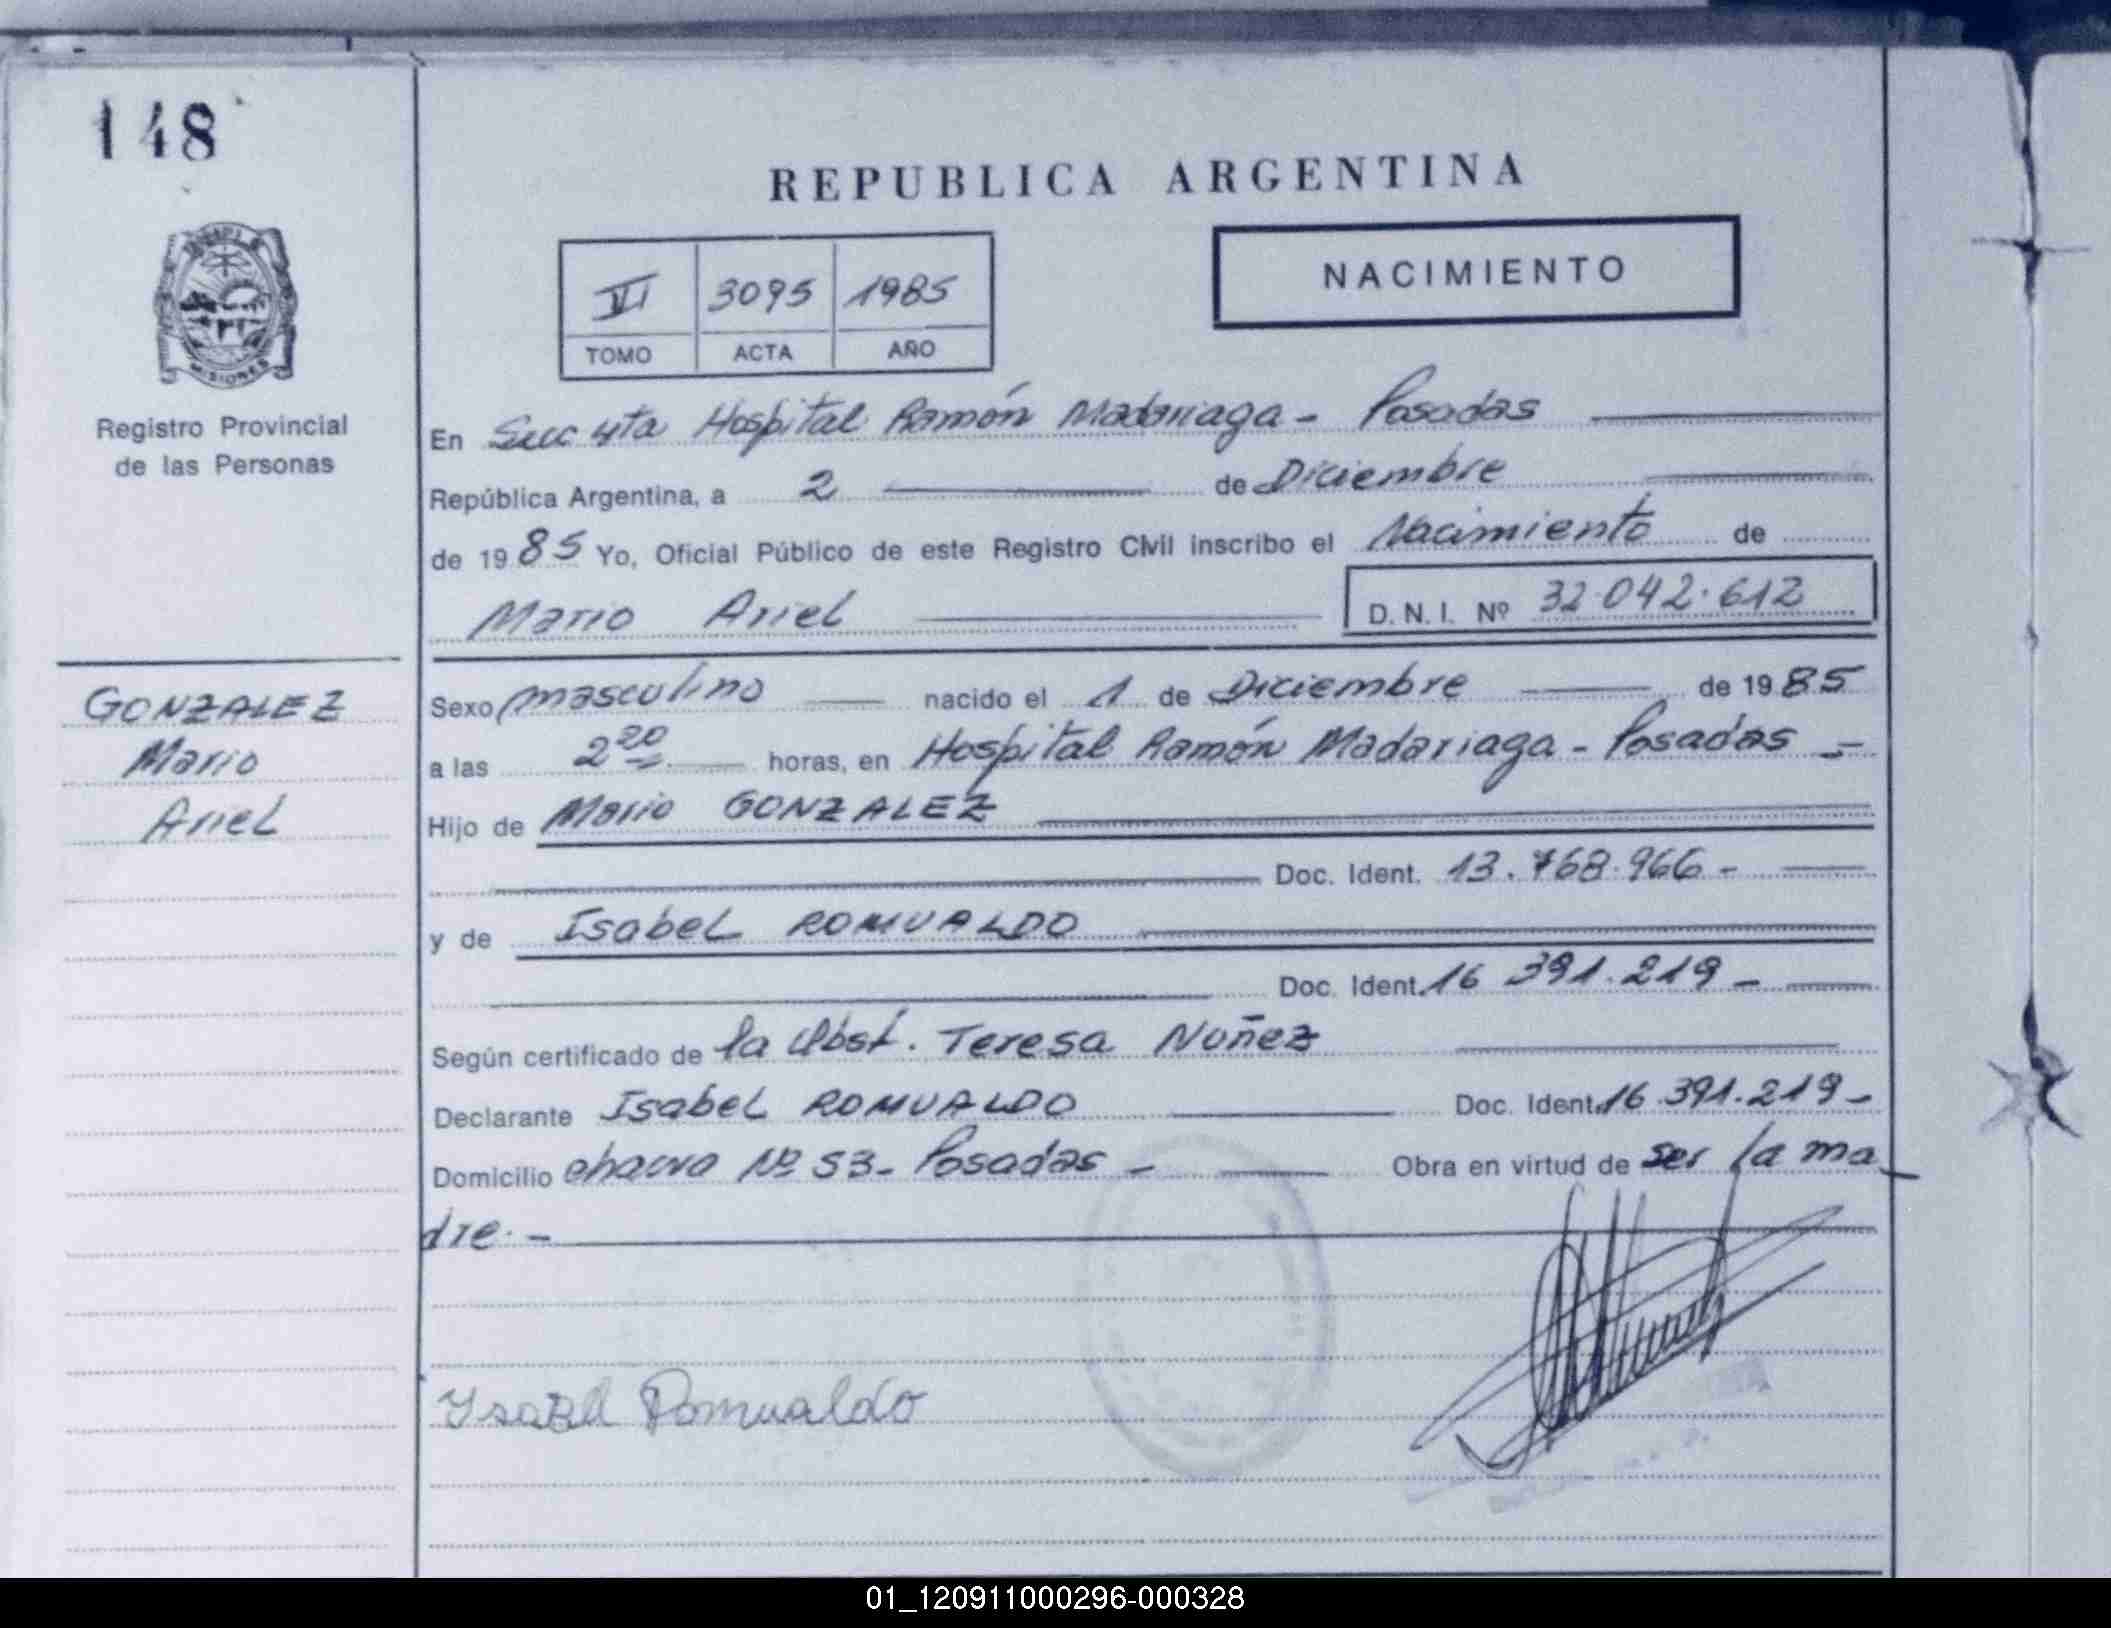 148
REPUBLICA ARGENTINA
VI 3095 1985
TOMO ACTA AÑO
NACIMIENTO
MISIONES
Registro Provincial
de las Personas
En Secc 4ta Hospital Ramón Madariaga - Posadas
República Argentina, a 2 de Diciembre
de 1985 Yo, Oficial Público de este Registro Civil inscribo el Nacimiento de
Mario Ariel D.N.I. Nº 32.042.612
GONZALEZ
Mario
Ariel
Sexo masculino nacido el 1 de Diciembre de 1985
a las 2 20 horas, en Hospital Ramón Madariaga - Posadas -
Hijo de Mario GONZALEZ
Doc. Ident. 13.768.966 -
y de Isabel ROMUALDO
Doc. Ident. 16 391.219 -
Según certificado de la Obst. Teresa Nuñez
Declarante Isabel ROMUALDO Doc. Ident. 16 391.219 -
Domicilio chacra Nº 53 - Posadas - Obra en virtud de ser la ma
dre. -
Ysabel Romualdo
01_120911000296-000328